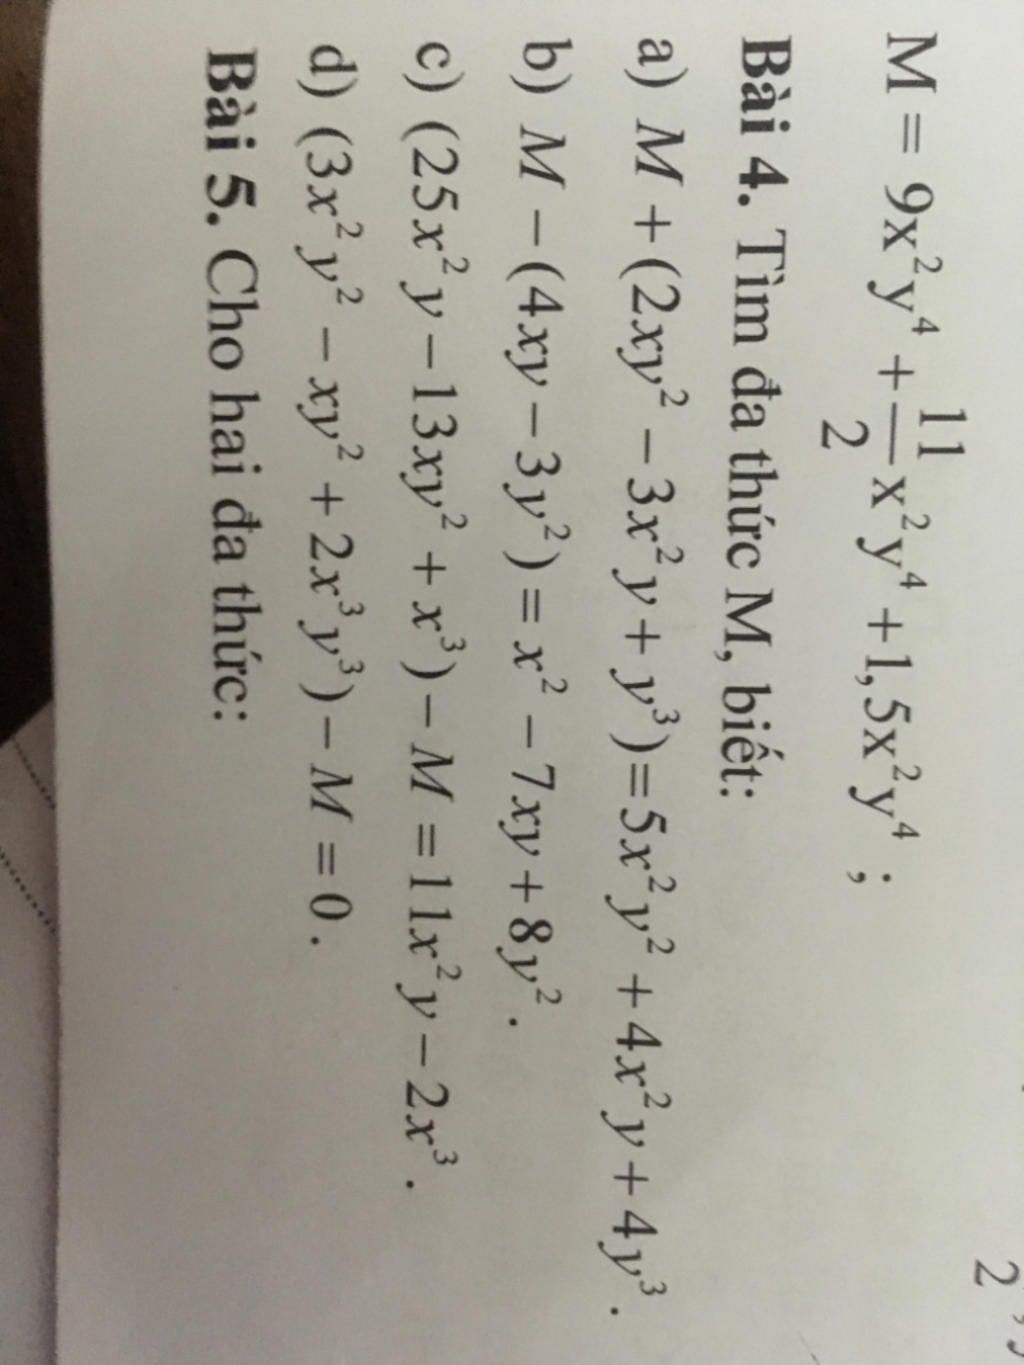 2
M = 9x²y⁴ + 11/2 x²y⁴ + 1,5x²y⁴ ;
Bài 4. Tìm đa thức M, biết:
a) M + (2xy² − 3x²y + y³) = 5x²y² + 4x²y + 4y³.
b) M − (4xy − 3y²) = x² − 7xy + 8y².
c) (25x²y − 13xy² + x³) − M = 11x²y − 2x³.
d) (3x²y² − xy² + 2x³y³) − M = 0.
Bài 5. Cho hai đa thức: